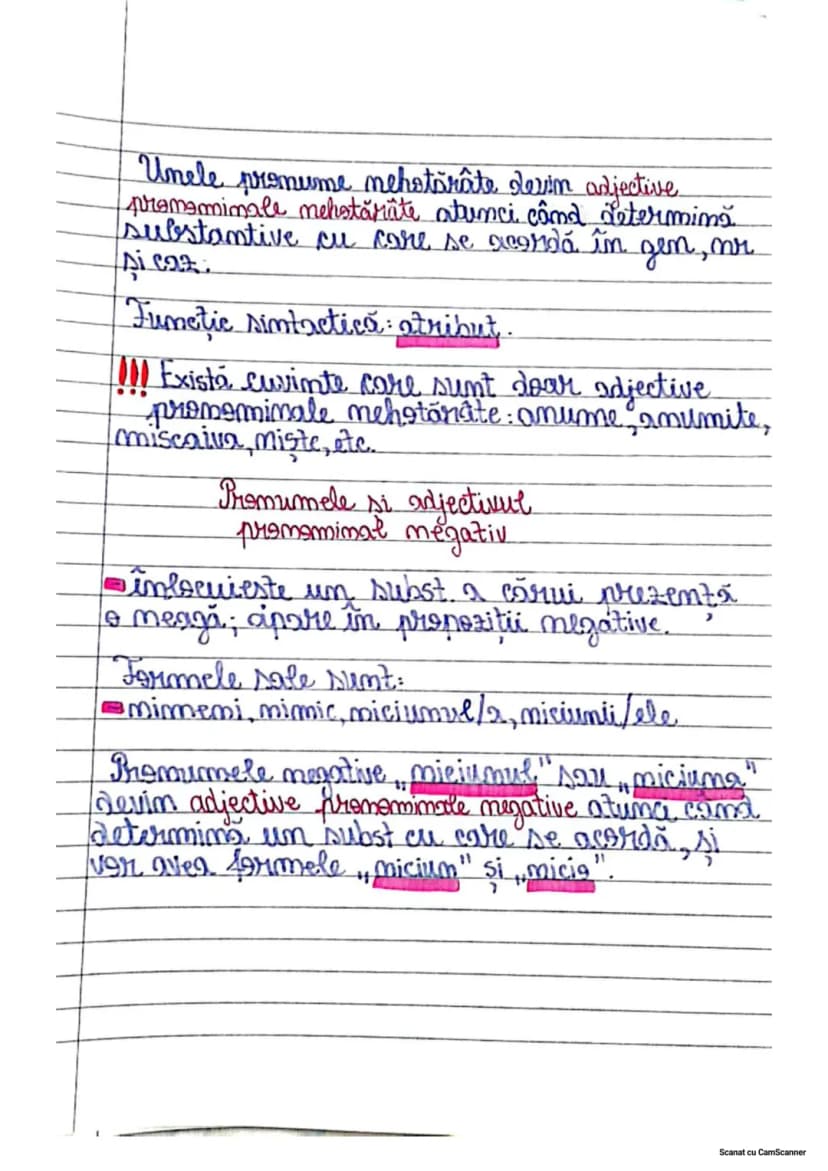 Unele pronume nehotărâte devin adjective
pronominale nehotărâte atunci când determină
substantive cu care se acordă în gen, nr
și caz.
Funcție sintactică: atribut.
!!! Există cuvinte care sunt doar adjective
pronominale nehotărâte: anume, anumite,
niscaiva, niște, etc.
Pronumele si adjectivul
pronominal negativ
- înlocuieste un subst. a cărui prezență
o neagă; apare în propoziții negative.
Formele sale sunt:
- nimeni, nimic, niciunul/a, niciunii/ele
Pronumele negative „niciunul" sau „niciuna"
devin adjective pronominale negative atunci când
determină un subst cu care se acordă, și
vor avea formele „niciun" și „nicio".
Scanat cu CamScanner